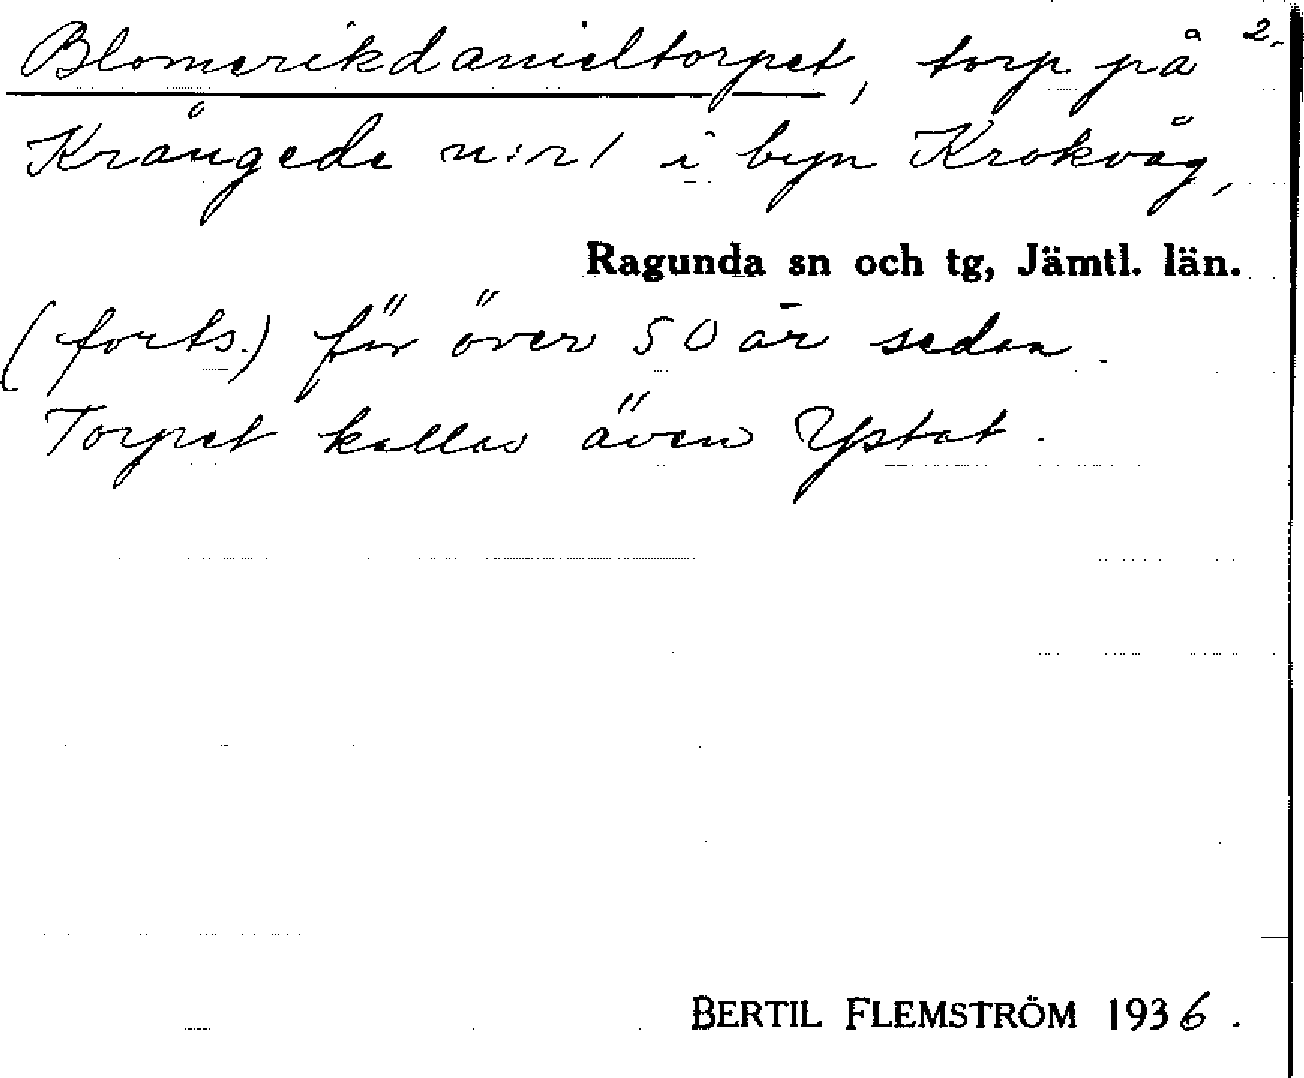 Blomerikdanieltorpet, torp på 2.
Krångede n:r 1 i byn Krokvåg,
Ragunda sn och tg, Jämtl. län.
(forts.) för över 50 år sedan.
Torpet kallas även Ystat.
BERTIL FLEMSTRÖM 1936.